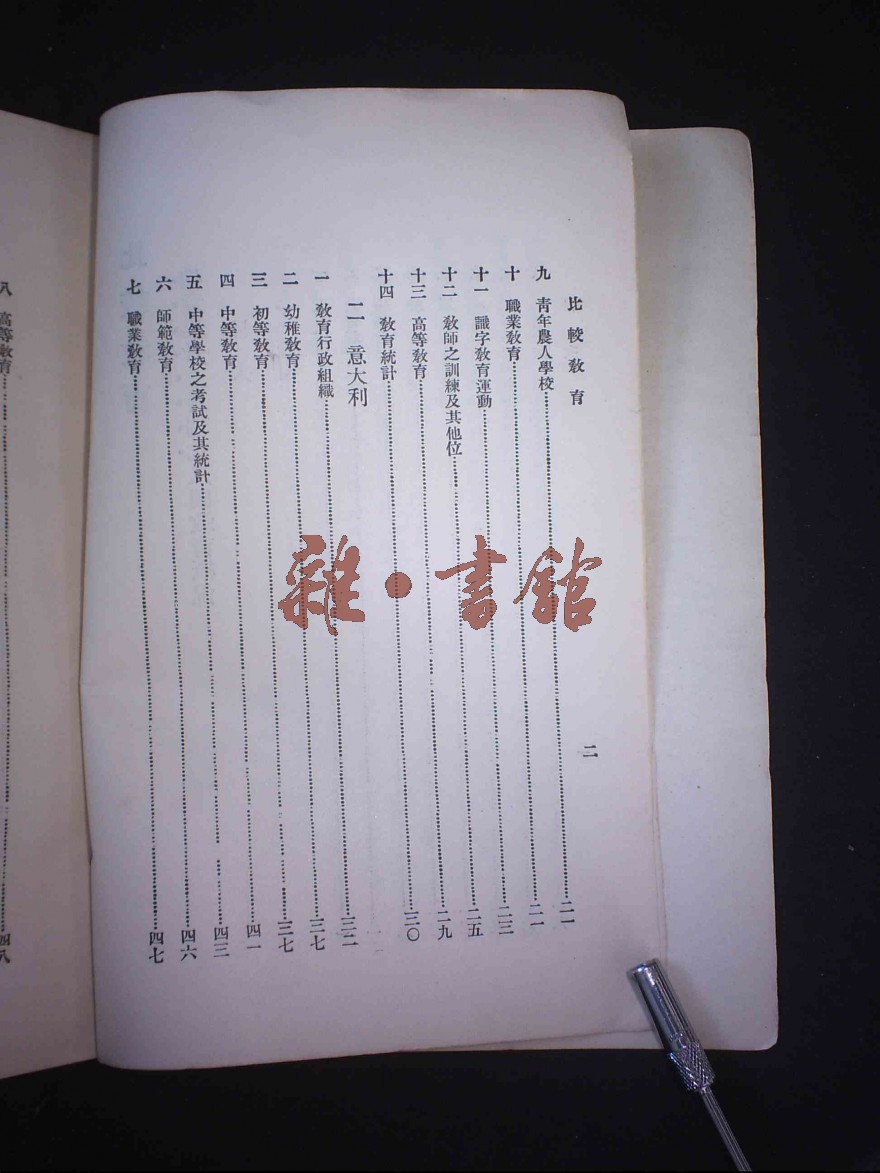 比較教育
二
九 青年農人學校……二一
十 職業教育……二一
十一 識字教育運動……二三
十二 教師之訓練及其他位……二五
十三 高等教育……二九
十四 教育統計……三〇
二 意大利
一 教育行政組織……三二
二 幼稚教育……三七
三 初等教育……三七
四 中等教育……四一
五 中等學校之考試及其統計……四三
六 師範教育……四六
七 職業教育……四七
八 高等教育……四八
雜·書館